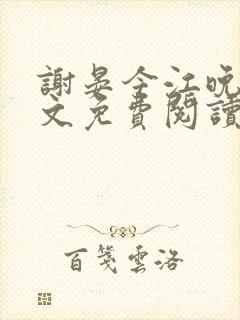 謝晏今江晚
文免費閱讀
百箋雲洛